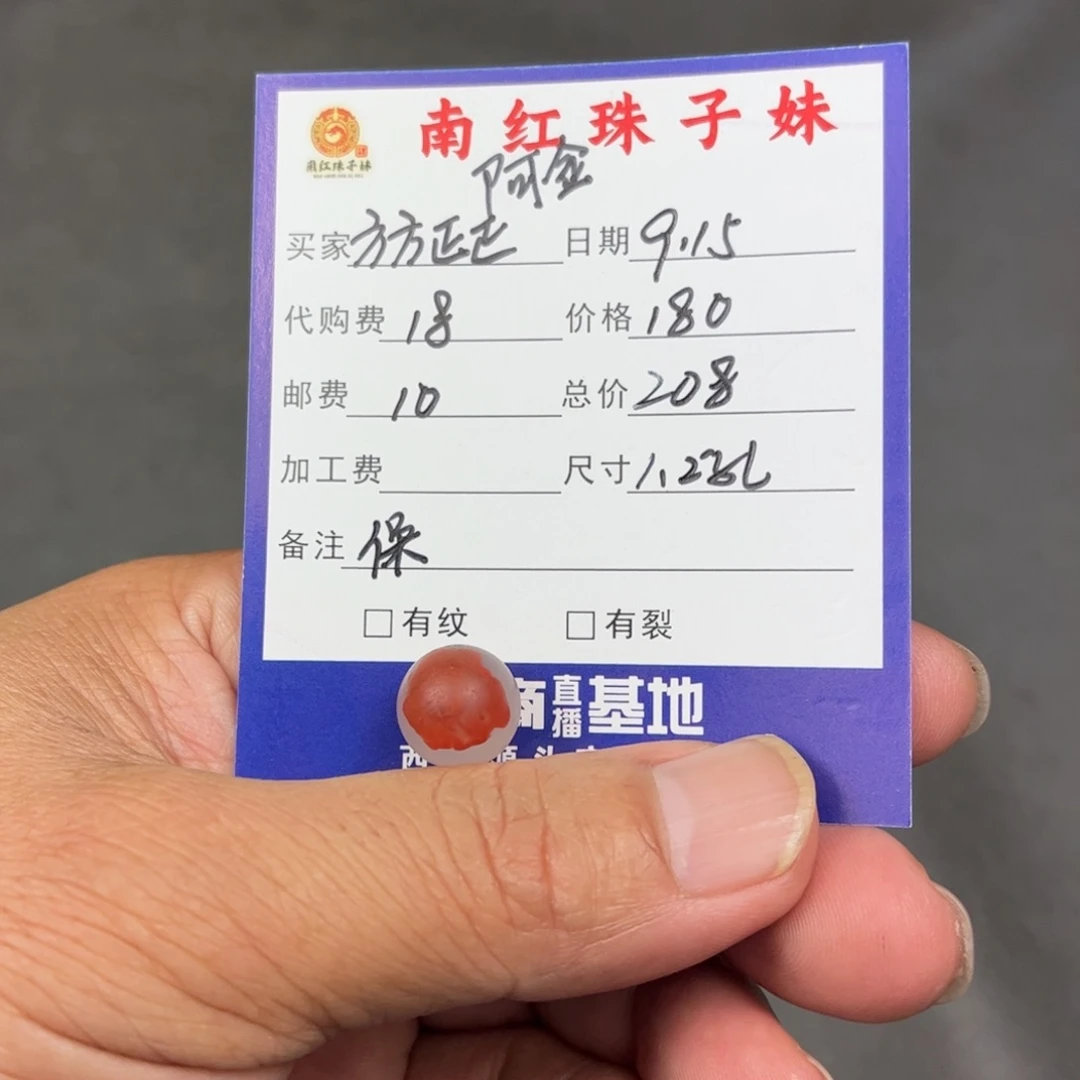 南红珠子妹
南红珠子妹
阿金
买家 方方正正 日期 9.15
代购费 18 价格 180
邮费 10 总价 208
加工费 尺寸 1.2
备注 保
□有纹 □有裂
商直播基地